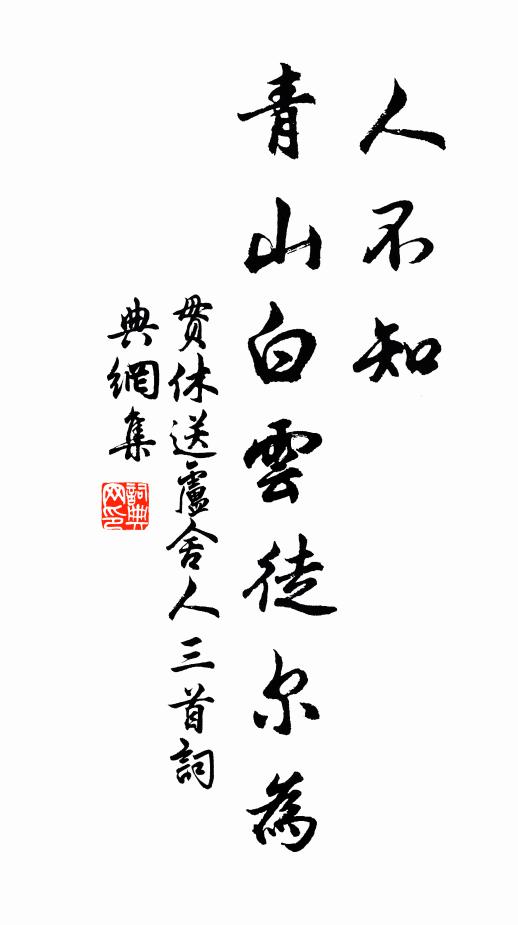 人不知
青山白雲徒尔為
貫休送盧舍人三首詞
典網集
詞典
网印